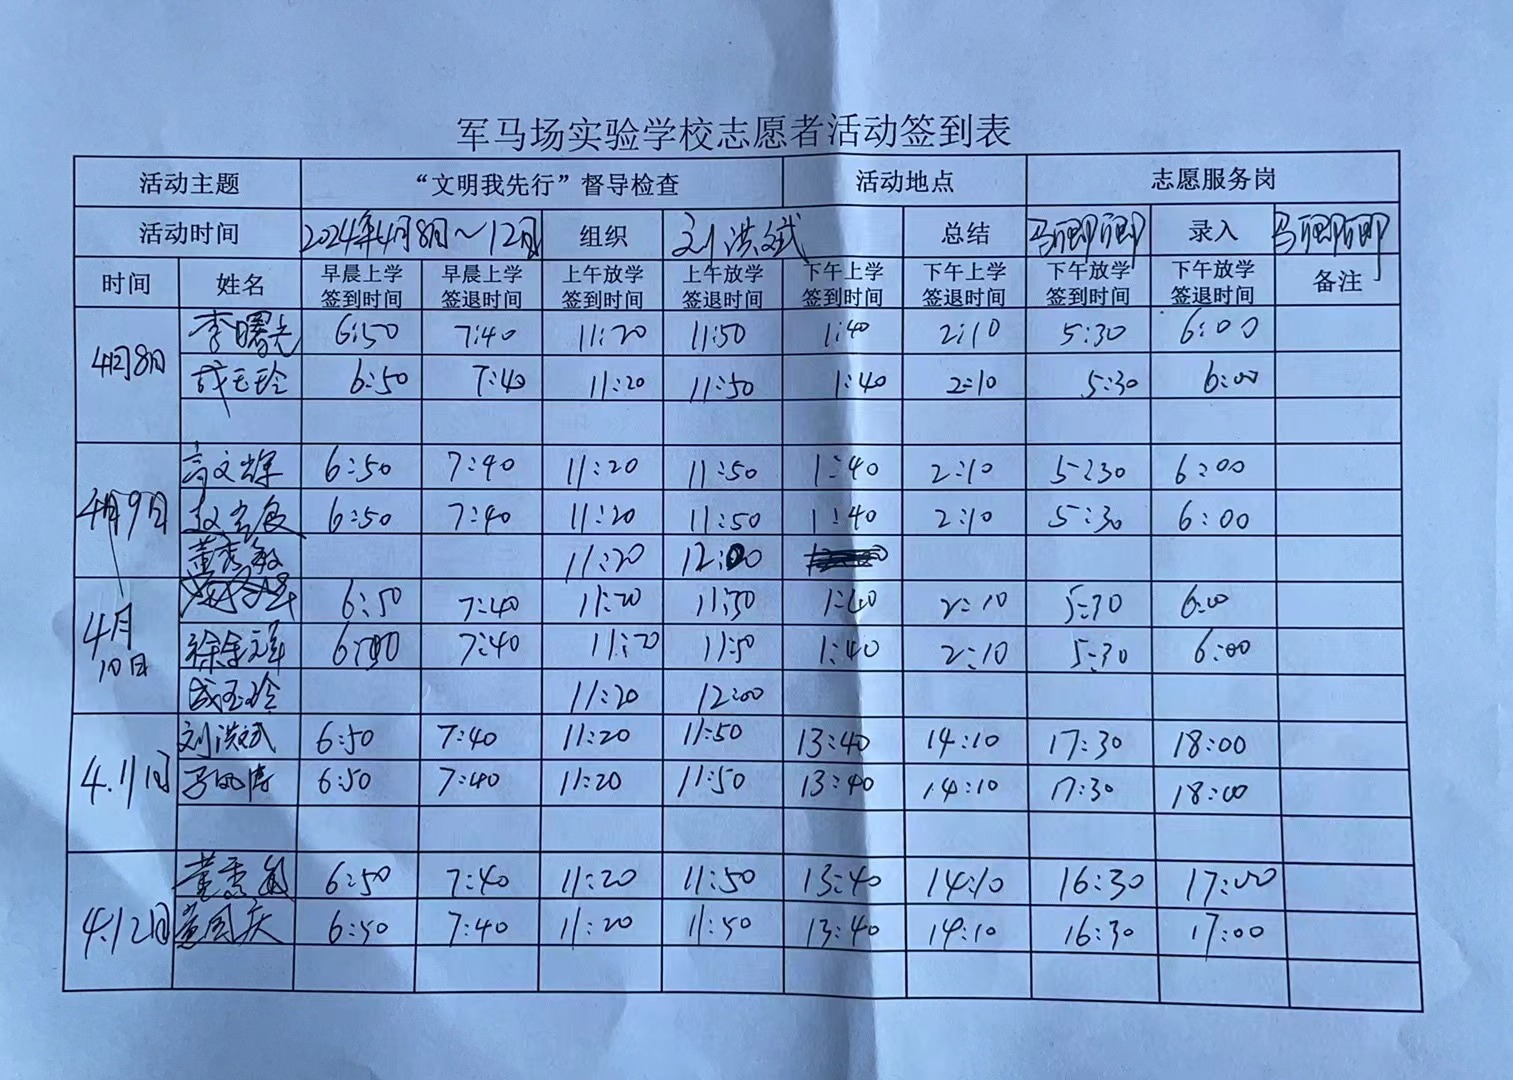 军马场实验学校志愿者活动签到表
活动主题 “文明我先行”督导检查 活动地点 志愿服务岗
活动时间 2024年4月8日～12日 组织 刘洪斌 总结 录入
时间 姓名 早晨上学签到时间 早晨上学签退时间 上午放学签到时间 上午放学签退时间 下午上学签到时间 下午上学签退时间 下午放学签到时间 下午放学签退时间 备注
4月8日 李曙光 6:50 7:40 11:20 11:50 1:40 2:10 5:30 6:00
成玉玲 6:50 7:40 11:20 11:50 1:40 2:10 5:30 6:00
4月9日 高文辉 6:50 7:40 11:20 11:50 1:40 2:10 5:30 6:00
6:50 7:40 11:20 11:50 1:40 2:10 5:30 6:00
董秀敏 11:20 12:00
4月10日 6:50 7:40 11:20 11:50 1:40 2:10 5:30 6:00
7:40 11:20 11:50 1:40 2:10 5:30 6:00
成玉玲 11:20 12:00
4.11日 刘洪斌 6:50 7:40 11:20 11:50 13:40 14:10 17:30 18:00
6:50 7:40 11:20 11:50 13:40 14:10 17:30 18:00
4.12日 董秀敏 6:50 7:40 11:20 11:50 13:40 14:10 16:30 17:00
国庆 6:50 7:40 11:20 11:50 13:40 14:10 16:30 17:00